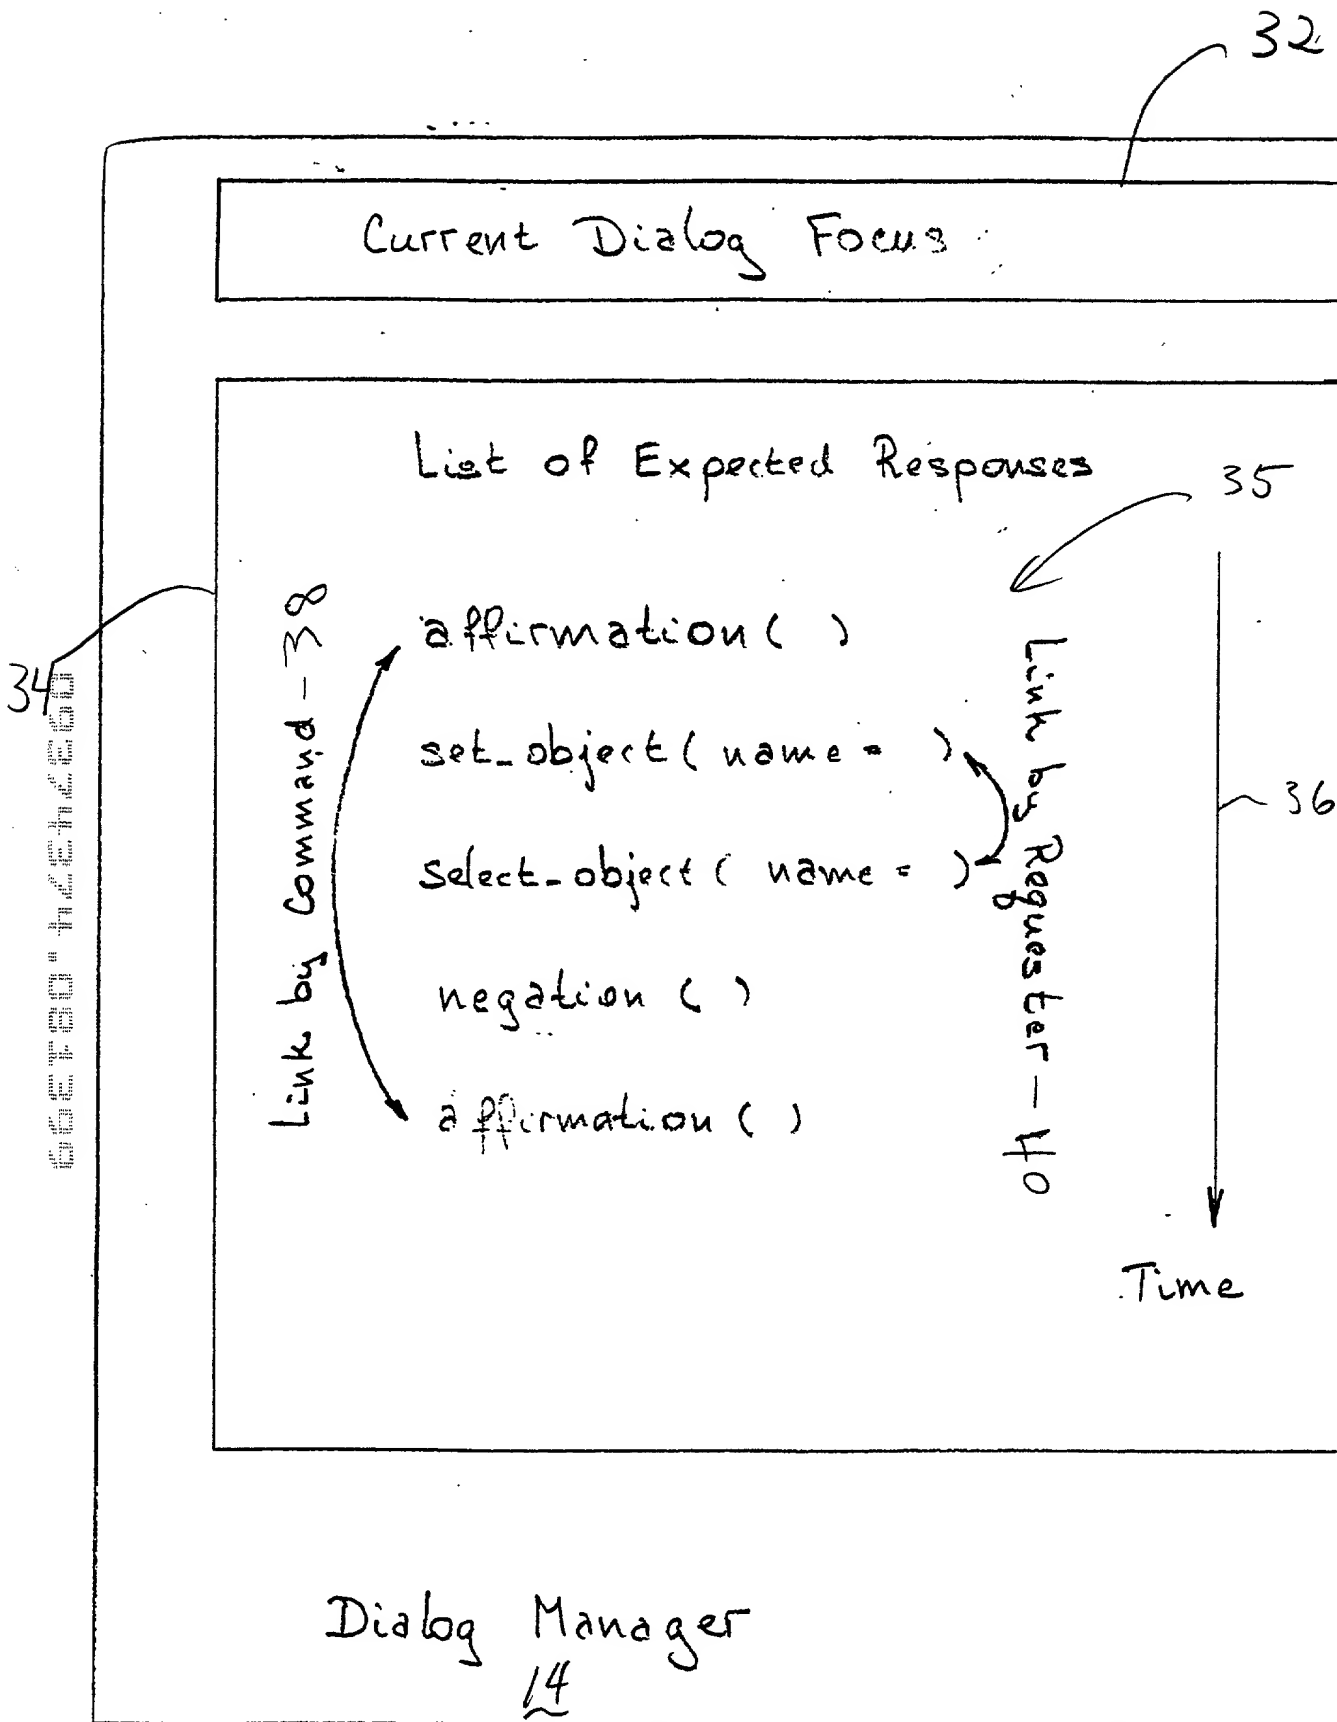 32
Current Dialog Focus
List of Expected Responses
35
34
Link by Command - 38
affirmation ( )
set_object ( name = )
select_object ( name = )
negation ( )
affirmation ( )
Link by Requester - 40
36
Time
Dialog Manager
14